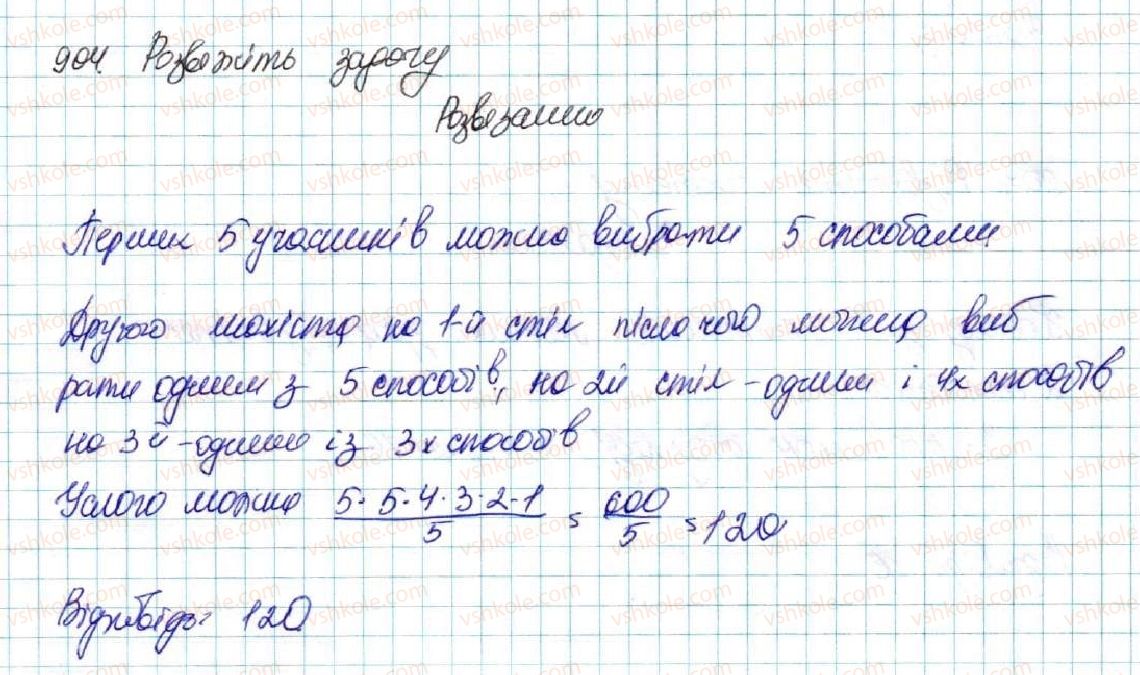 904. Розвяжіть задачу
Розвязання
Перших 5 учасників можна вибрати 5 способами
Другого шахіста на 1-й стіл після чого можна виб
рати одним з 5 способів, на 2й стіл - одним і 4х способів
на 3й - одним із 3х способів
Усього можна 5·5·4·3·2·1/5 = 600/5 = 120
Відповідь: 120